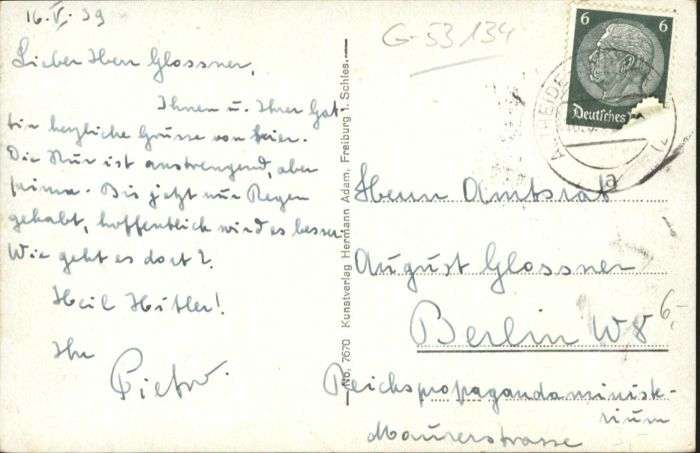 16.V.39
Lieber Herr Glossner,
Ihnen u. Ihrer Gat-
tin herzliche Grüsse von hier.
Die Kur ist anstrengend, aber
prima. Bis jetzt nur Regen
gehabt, hoffentlich wird es besser.
Wie geht es dort?
Heil Hitler!
Ihr
No. 7670 Kunstverlag Hermann Adam, Freiburg i. Schles.
G-53134
6 6
Deutsches
Herrn Amtsrat
August Glossner
Berlin W8
6,-
Reichspropagandaminist-
erium
Mauerstrasse